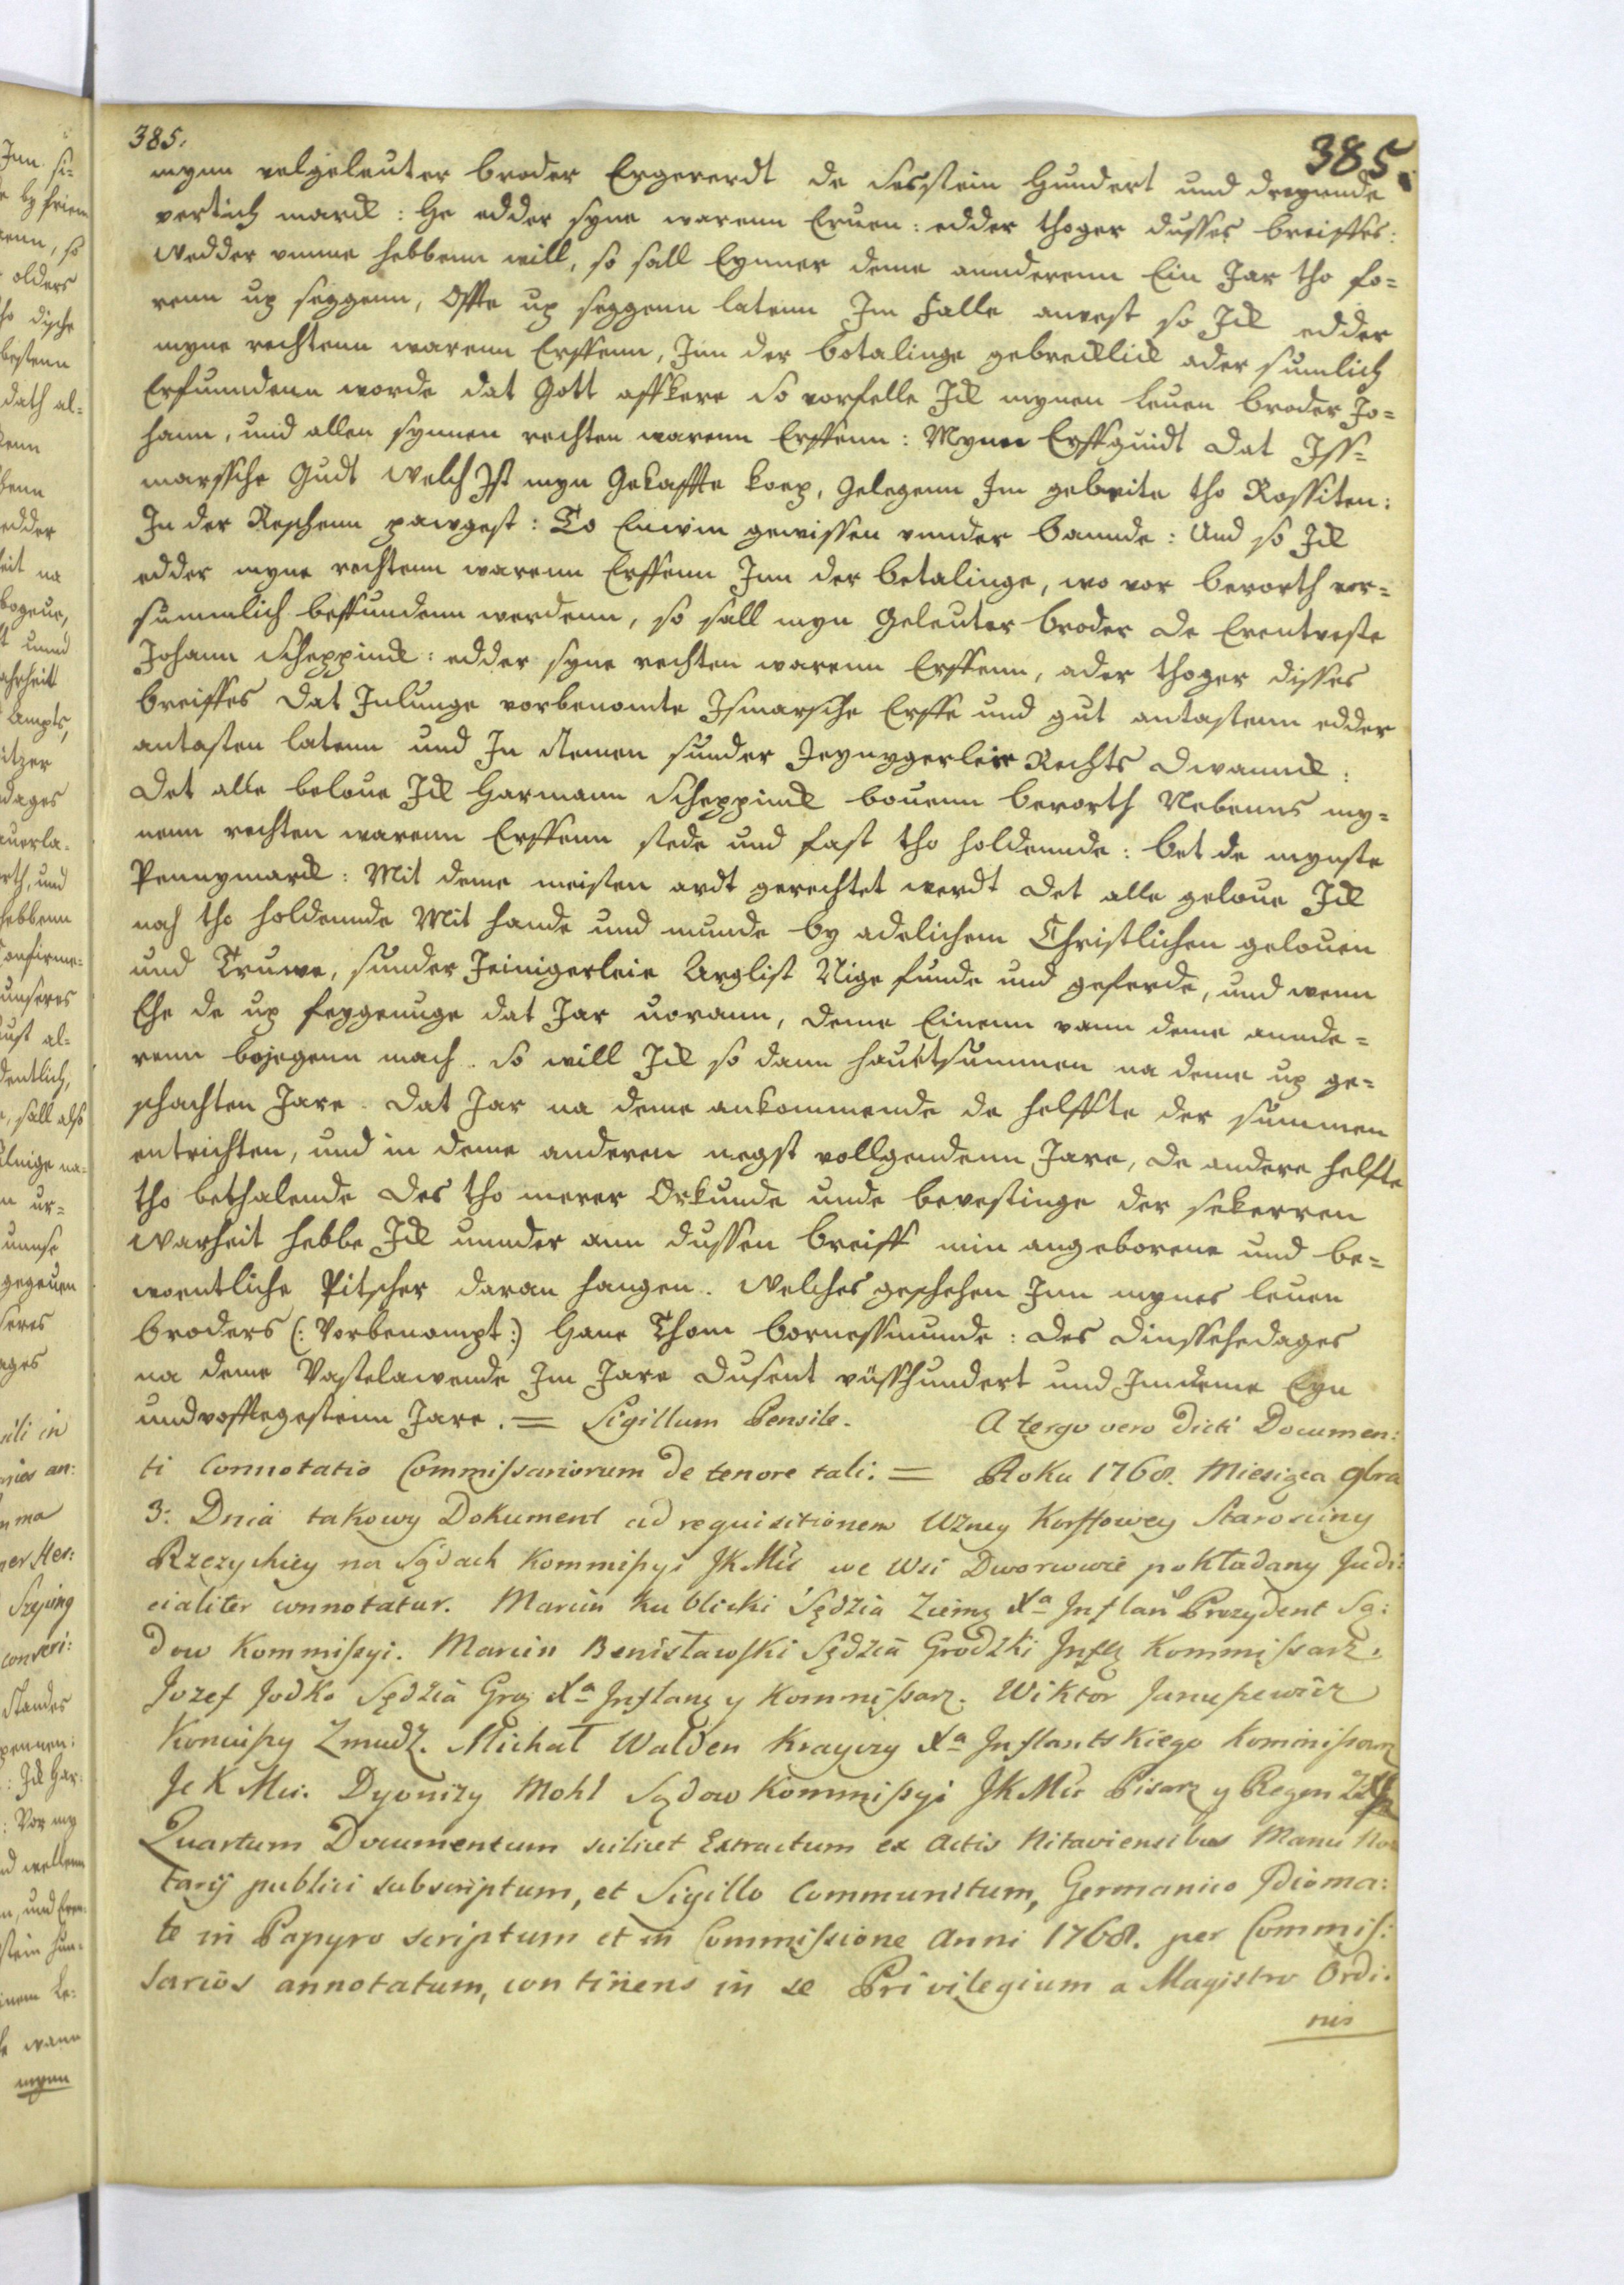 385.
385.
mynn velgeleuter broder Ergererdt de Sesstein Hundert und dreyunde
vertich marck: He edder syne warenn Eruen: edder thoger dusses breiffes:
Wedder umme hebbenn will, so sall Eynner deme annderenn Ein Jar tho fo=
renn up seggenn, Offte up seggenn latenn Im Falle anvest so Ick edder
myne rechtenn warenn Erffenn, Inn der botalinge gebrecklick ader sumlich
Erfunndenn worde dat Gott affkere So vorfelle Ick mynen leuen broder Jo=
hann, und allen synnen rechten warenn Erffenn: Mynne Erffguidt dat Iss=
marssche Gudt welch Ist myn Gekaffte koep, Gelegenn Im gebeite tho Rossiten:
In der Reschenn pawgest: To Eniwin gewissen unnder bannde: Und so Ick
edder myne rechtenn warenn Erffenn Inn der betalinge, wo vor berorth vor=
sumnlich beffundenn werdenn, so sall myn Geleuter broder de Erentveste
Johann Scheppinck: edder syne rechten warenn Erffenn, ader thoger disses
breiffes dat Inlunge vorbenomte Ismarsche Erffe und gut antastenn edder
antasten latenn und In Nemen sunder Jeynygerleie Rechts dwannck:
Det alle beloue Ick Harmann Scheppinck bouenn berorth Nebenns my=
nenn rechten warenn Erffenn stede und fast tho holdennde: bet de mynste
Pennymarck: Mit deme meisten ardt gerechtet werdt det alle geloue Ick
noch tho holdennde Mit Hande und munde by adelichem Christlichen gelouen
und Truwe, sunder Jeinigerleie Arglist Nige funde und geferde, und wenn
Ehe de up seygenuge dat Jar uorann, deme Einenn vann deme annde=
renn bejegenn mach. So will Ick so dann hauetsummen na deme up ge=
schachten Jare. Dat Jar na deme ankommende de helffte der summen
entrichten, und in deme anderen negst vollgendenn Jare, de andere helfte
tho bethalende des tho merer Orkunde unde bevestinge der sekerren
Warheit hebbe Ick unnder ann dussen breiff min angeborene und be=
woentliche Pitscher daran hangen. Welches geschehen Inn mynes leuen
broders (: Vorbenompt:) Haue Thom bornessmunde: des dinsschedages
na deme Vastelawende Im Jare dusent vüffhundert und Imdeme Eyn
undvofftegesteinn Jare. = Sigillum Pensile. A tergo vero dicti Documen:
ti Connotatio Commissariorum de tenore tali. = Roku 1768. Miesiąca 9bra
3: Dnia takowy Dokument ad requisitionem Wżney Korffowey Starosciny
Rzezyckiey na Sądach Kommissyi JKMśc we Wsi Dworowcie pokładany Judi:
cialiter connotatur. Marcin Kublicki Sędzia Ziemȝ Xa Inflan Prezydent Są:
dow Kommissyi. Marcin Benisławski Sędzia Grodzki Inflȝ Kommissarz.
Jozef Jodko Sędzia Groȝ Xa Inflanȝ y Kommissarz. Wiktor Janussewicz
Koniuszy Zmudz. Michał Walden Krayczy Xa Inflantskiego Kommissarz
JeKMsi. Dyonizy Mohl Sądow Kommissyi JKMśc Pisarz y Regen
Quartum Documentum scilicet Extractum ex Actis Mitaviensibus Manu No
tarij publici subscriptum, et Sigillo Communitum, Germanico Idioma:
te in Papyro scriptum et in Commissione Anni 1768. per Commis:
sarios annotatum, continens in se Privilegium a Magistro Ordi:
nis